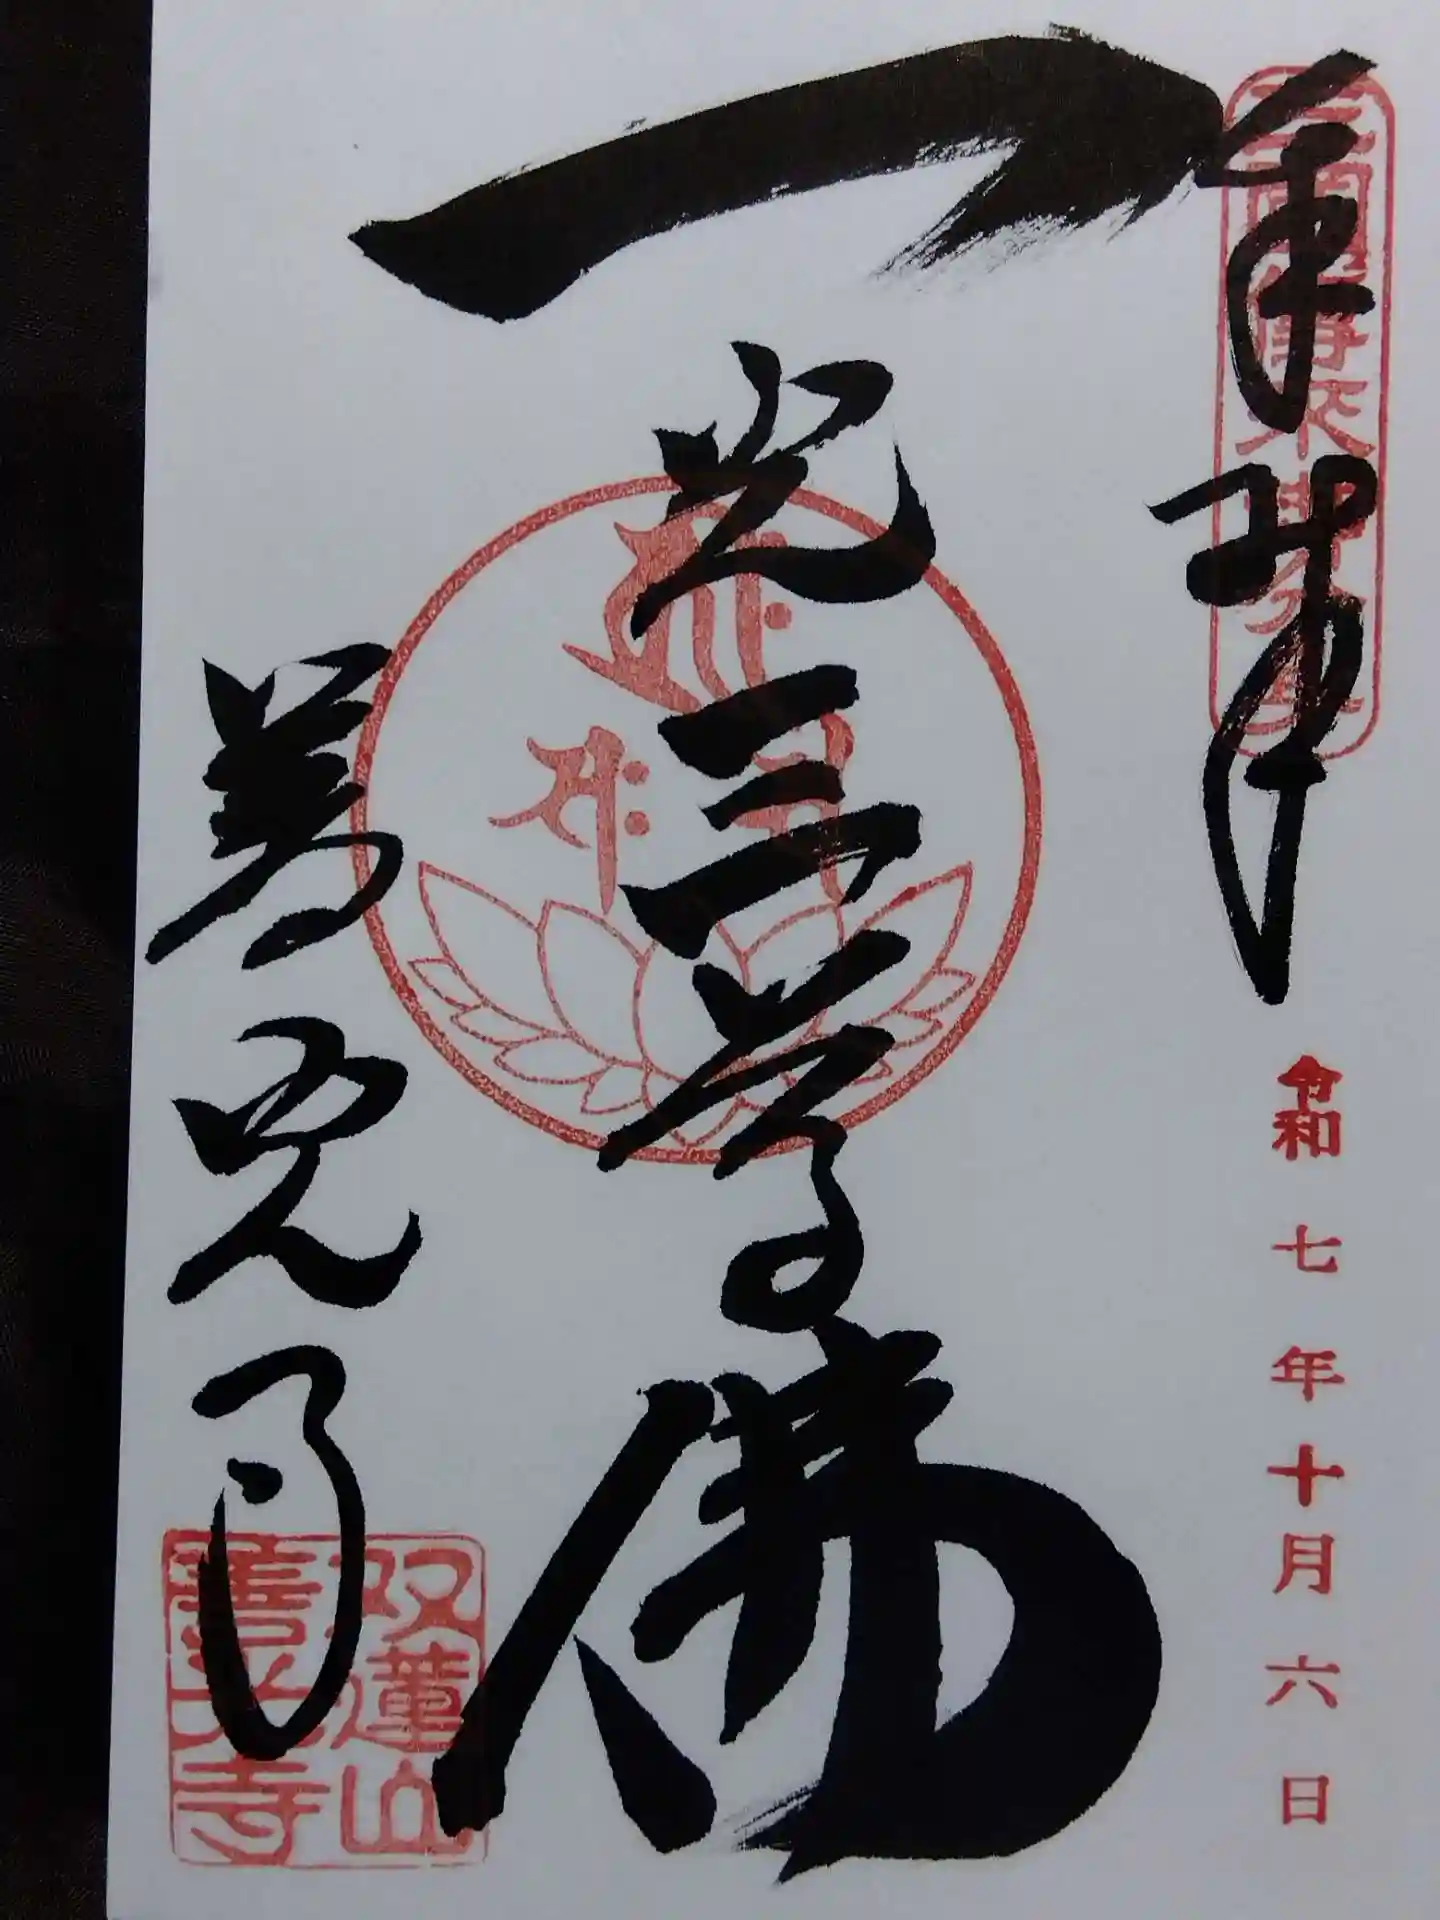 奉拝
三國傳来
令和七年十月六日
一光三尊佛
善光寺
双蓮山
善光寺